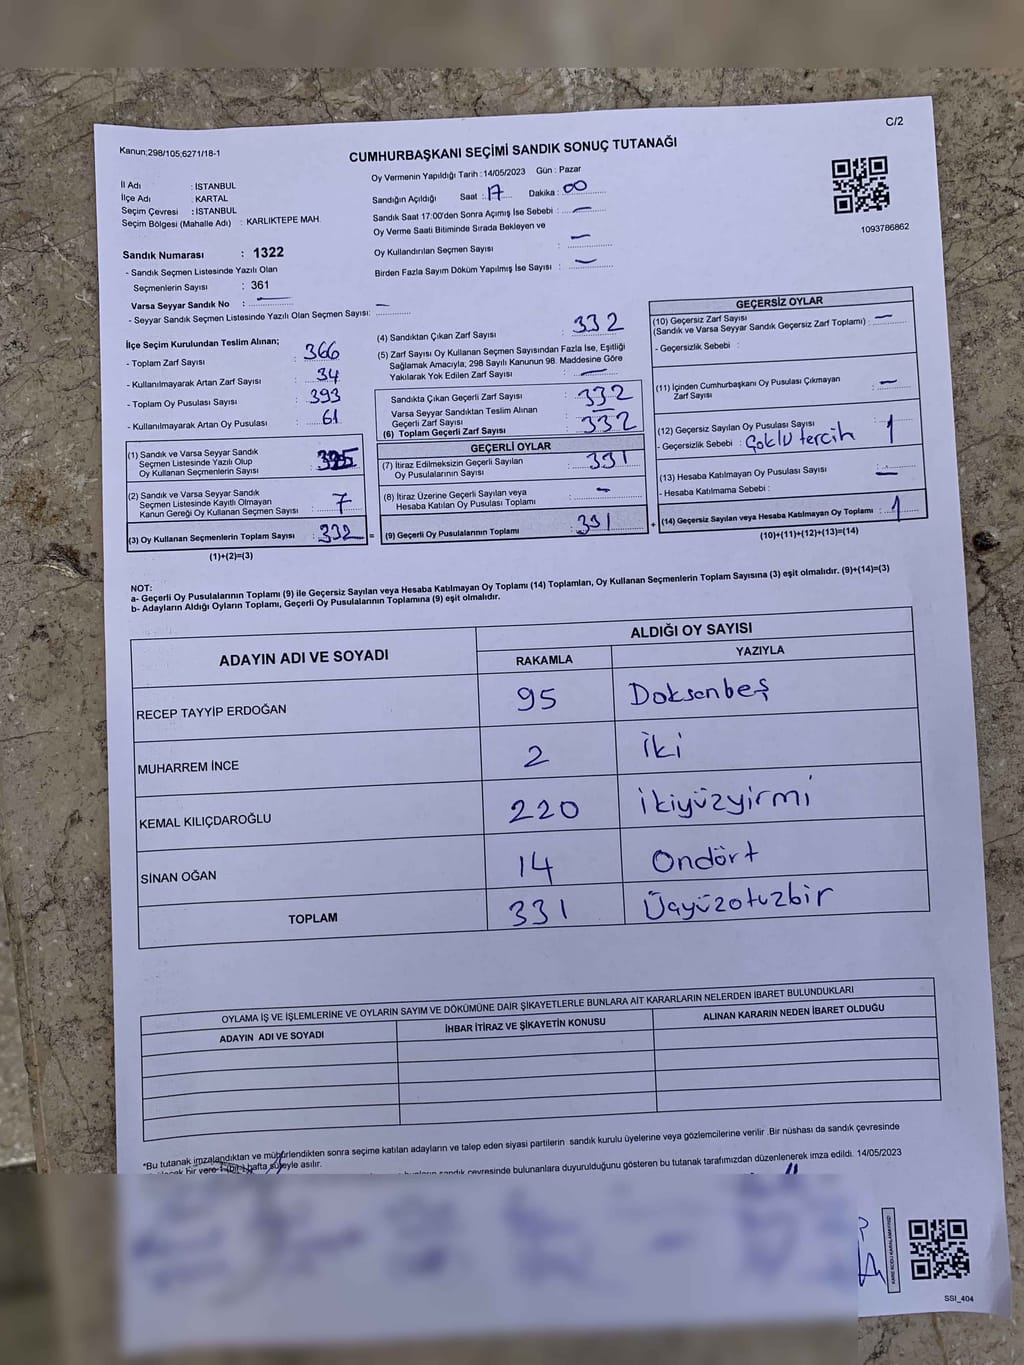 C/2
Kanun;298/105;6271/18-1
CUMHURBAŞKANI SEÇİMİ SANDIK SONUÇ TUTANAĞI
Oy Vermenin Yapıldığı Tarih : 14/05/2023 Gün : Pazar
İl Adı : İSTANBUL
İlçe Adı : KARTAL
Seçim Çevresi : İSTANBUL
Seçim Bölgesi (Mahalle Adı) : KARLIKTEPE MAH.
Sandığın Açıldığı Saat : 17 Dakika : 00
Sandık Saat 17:00'den Sonra Açımış İse Sebebi : —
Oy Verme Saati Bitiminde Sırada Bekleyen ve
Oy Kullandırılan Seçmen Sayısı : —
Birden Fazla Sayım Döküm Yapılmış İse Sayısı : —
1093786862
Sandık Numarası : 1322
- Sandık Seçmen Listesinde Yazılı Olan
Seçmenlerin Sayısı : 361
Varsa Seyyar Sandık No : —
- Seyyar Sandık Seçmen Listesinde Yazılı Olan Seçmen Sayısı: —
İlçe Seçim Kurulundan Teslim Alınan;
- Toplam Zarf Sayısı : 366
- Kullanılmayarak Artan Zarf Sayısı : 34
- Toplam Oy Pusulası Sayısı : 393
- Kullanılmayarak Artan Oy Pusulası : 61
(1) Sandık ve Varsa Seyyar Sandık
Seçmen Listesinde Yazılı Olup
Oy Kullanan Seçmenlerin Sayısı : 325
(2) Sandık ve Varsa Seyyar Sandık
Seçmen Listesinde Kayıtlı Olmayan
Kanun Gereği Oy Kullanan Seçmen Sayısı : 7
(3) Oy Kullanan Seçmenlerin Toplam Sayısı : 332 =
(1)+(2)=(3)
(4) Sandıktan Çıkan Zarf Sayısı : 332
(5) Zarf Sayısı Oy Kullanan Seçmen Sayısından Fazla İse, Eşitliği
Sağlamak Amacıyla; 298 Sayılı Kanunun 98. Maddesine Göre
Yakılarak Yok Edilen Zarf Sayısı : —
Sandıkta Çıkan Geçerli Zarf Sayısı : 332
Varsa Seyyar Sandıktan Teslim Alınan
Geçerli Zarf Sayısı : —
(6) Toplam Geçerli Zarf Sayısı : 332
GEÇERLİ OYLAR
(7) İtiraz Edilmeksizin Geçerli Sayılan
Oy Pusulalarının Sayısı : 331
(8) İtiraz Üzerine Geçerli Sayılan veya
Hesaba Katılan Oy Pusulası Toplamı : —
(9) Geçerli Oy Pusulalarının Toplamı : 331 +
GEÇERSİZ OYLAR
(10) Geçersiz Zarf Sayısı
(Sandık ve Varsa Seyyar Sandık Geçersiz Zarf Toplamı) : —
- Geçersizlik Sebebi :
(11) İçinden Cumhurbaşkanı Oy Pusulası Çıkmayan
Zarf Sayısı : —
(12) Geçersiz Sayılan Oy Pusulası Sayısı : 1
- Geçersizlik Sebebi : Çoklu tercih
(13) Hesaba Katılmayan Oy Pusulası Sayısı : —
- Hesaba Katılmama Sebebi :
(14) Geçersiz Sayılan veya Hesaba Katılmayan Oy Toplamı : 1
(10)+(11)+(12)+(13)=(14)
NOT:
a- Geçerli Oy Pusulalarının Toplamı (9) ile Geçersiz Sayılan veya Hesaba Katılmayan Oy Toplamı (14) Toplamları, Oy Kullanan Seçmenlerin Toplam Sayısına (3) eşit olmalıdır. (9)+(14)=(3)
b- Adayların Aldığı Oyların Toplamı, Geçerli Oy Pusulalarının Toplamına (9) eşit olmalıdır.
ADAYIN ADI VE SOYADI
ALDIĞI OY SAYISI
RAKAMLA YAZIYLA
RECEP TAYYİP ERDOĞAN 95 Doksanbeş
MUHARREM İNCE 2 İki
KEMAL KILIÇDAROĞLU 220 ikiyüzyirmi
SİNAN OĞAN 14 Ondört
TOPLAM 331 Üçyüzotuzbir
OYLAMA İŞ VE İŞLEMLERİNE VE OYLARIN SAYIM VE DÖKÜMÜNE DAİR ŞİKAYETLERLE BUNLARA AİT KARARLARIN NELERDEN İBARET BULUNDUKLARI
ADAYIN ADI VE SOYADI İHBAR İTİRAZ VE ŞİKAYETİN KONUSU ALINAN KARARIN NEDEN İBARET OLDUĞU
*Bu tutanak imzalandıktan ve mühürlendikten sonra seçime katılan adayların ve talep eden siyasi partilerin sandık kurulu üyelerine veya gözlemcilerine verilir .Bir nüshası da sandık çevresinde
bir yere 1 (bir) hafta süreyle asılır.
sandık çevresinde bulunanlara duyurulduğunu gösteren bu tutanak tarafımızdan düzenlenerek imza edildi. 14/05/2023
KARE KODU KARALAMAYINIZ!
SSI_404